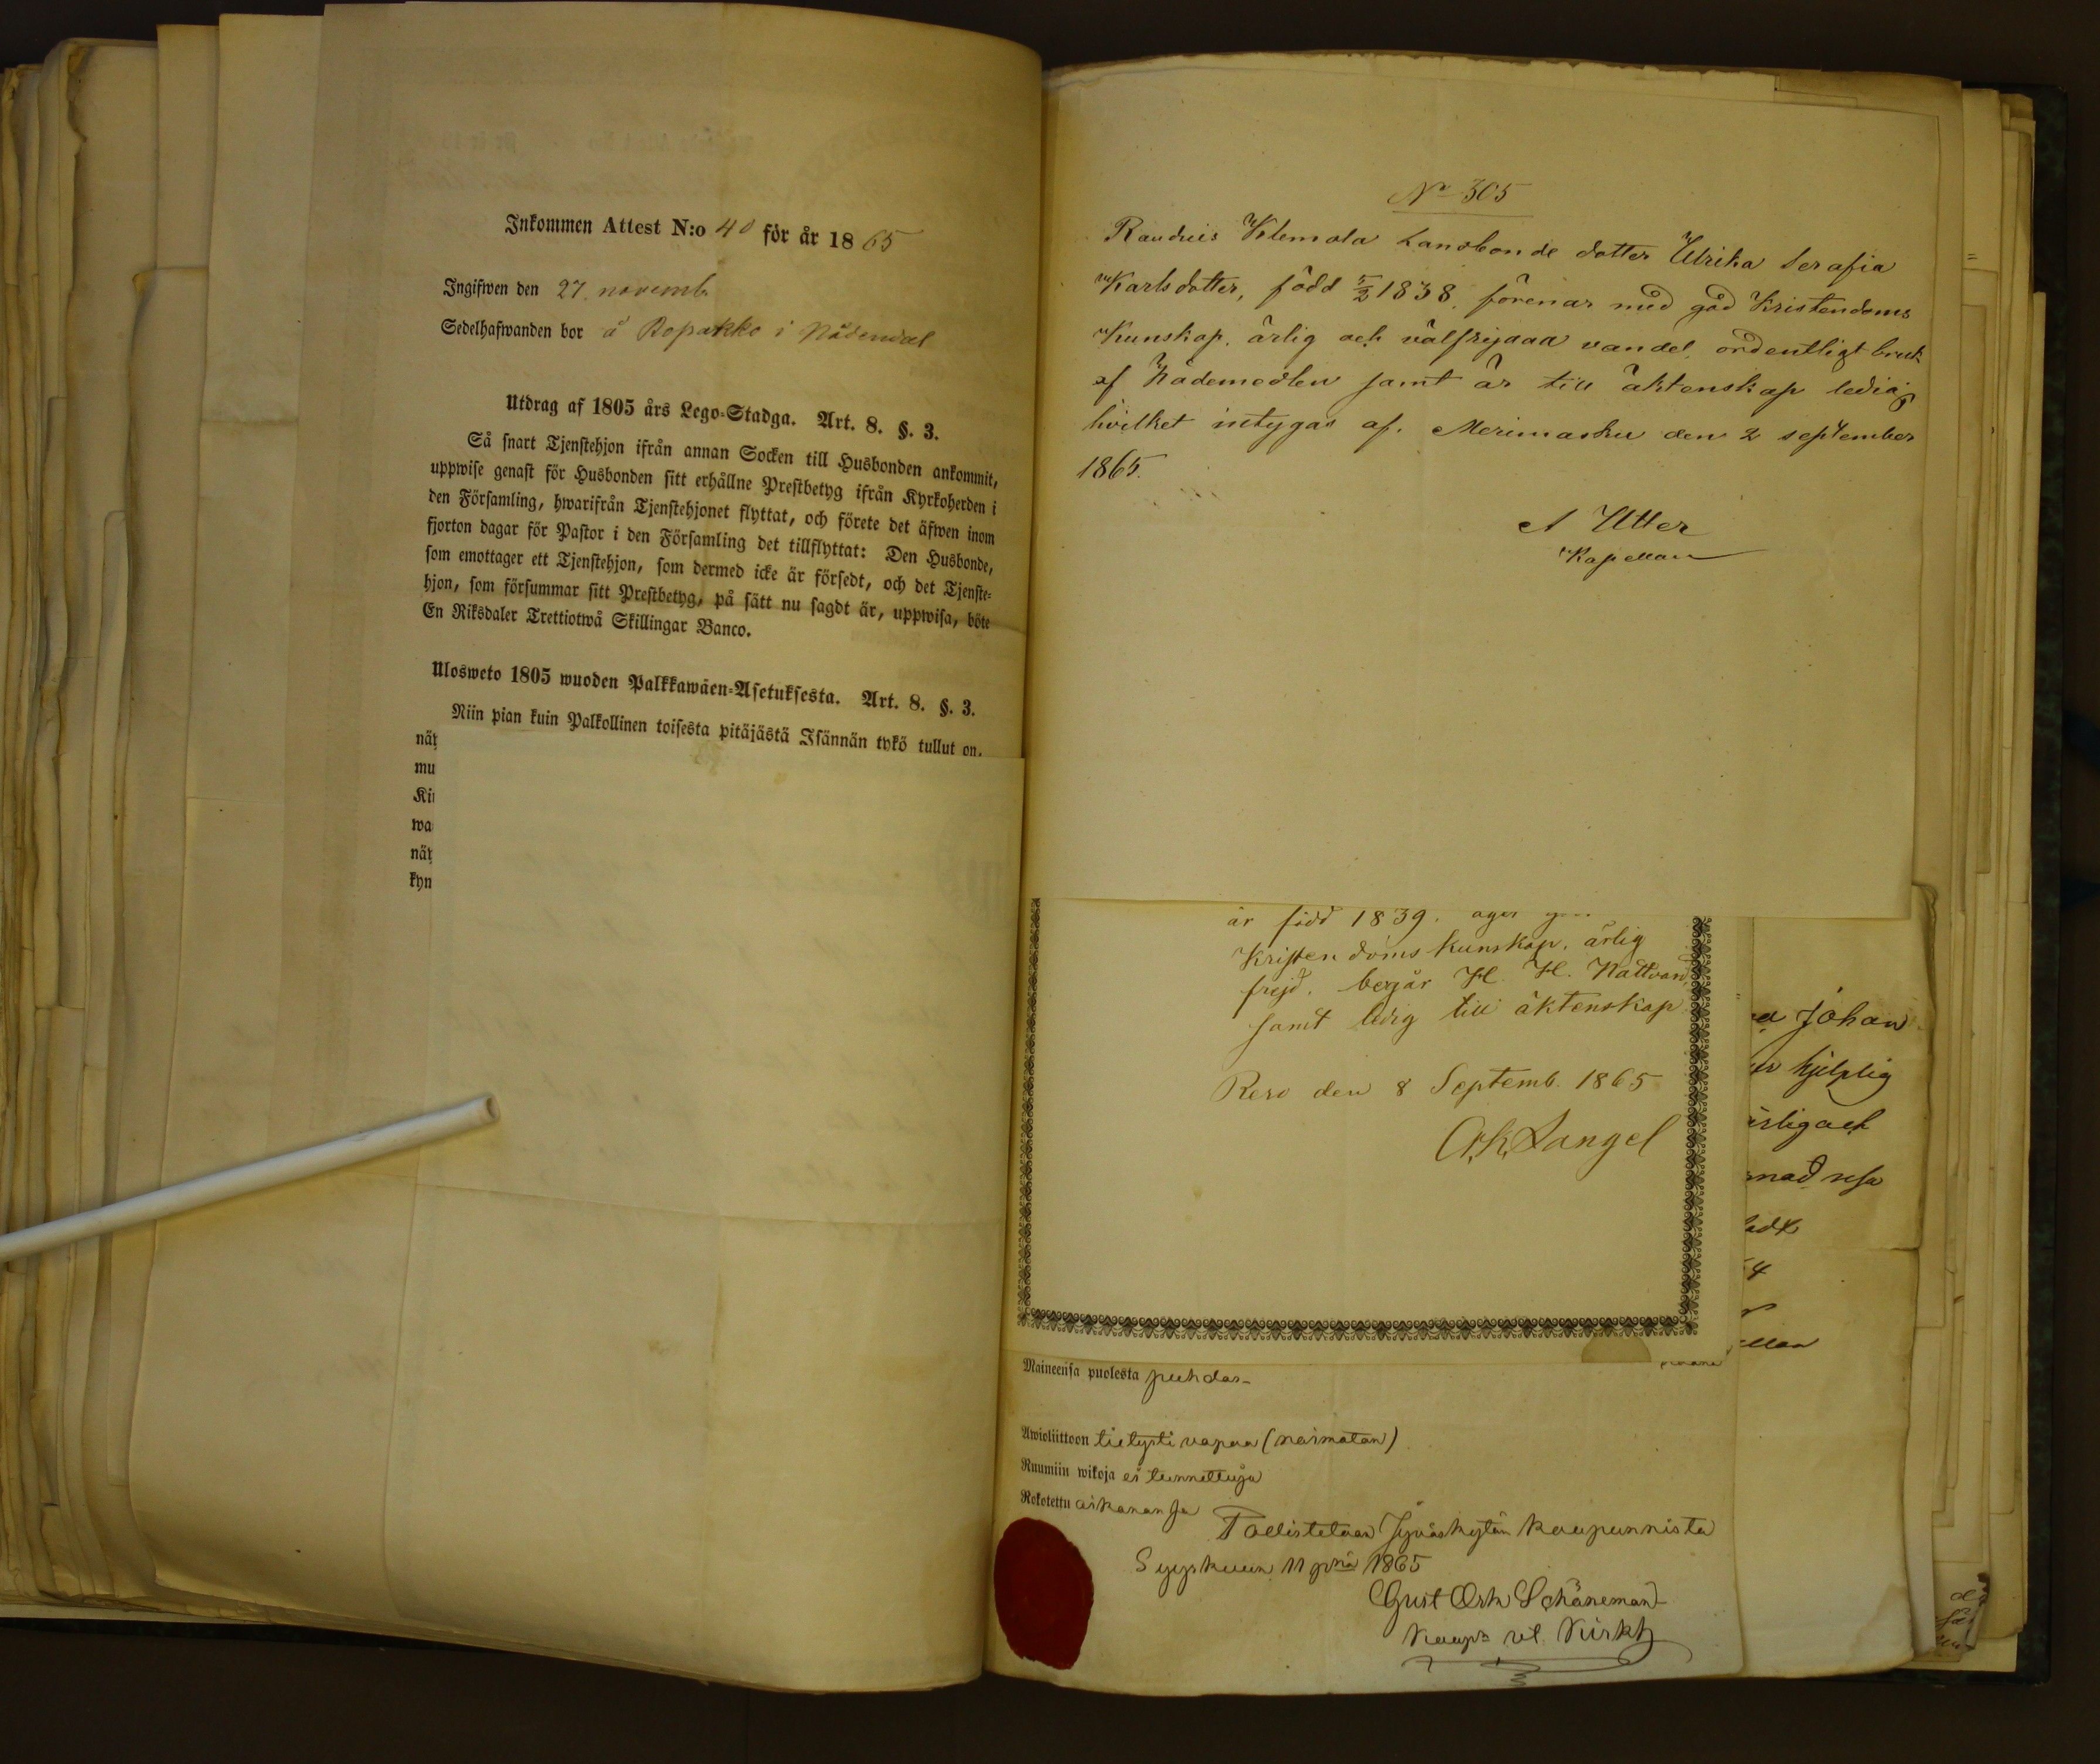 Inkommen Attest N:o 40 för år 1865
Ingifwen den 27. novemb.
Sedelhafwanden bor å Bopakko i Nådendal
Utdrag af 1805 års Lego-Stadga. Art. 8. §. 3.
Så snart Tjenstehjon ifrån annan Socken till Husbonden ankommit,
uppwise genast för Husbonden sitt erhållne Prestbetyg ifrån Kyrkoherden i
den Församling, hwarifrån Tjenstehjonet flyttat, och förete det äfwen inom
fjorton dagar för Pastor i den Församling det tillflyttat: Den Husbonde,
som emottager ett Tjenstehjon, som dermed icke är försedt, och det Tjenste-
hjon, som försummar sitt Prestbetyg, på sätt nu sagdt är, uppwisa, böte
En Riksdaler Trettiotwå Skillingar Banco.
Ulosweto 1805 wuoden Palkkawäen-Asetuksesta. Art. 8. §. 3.
Niin pian kuin Palkollinen toisesta pitäjästä Isännän tykö tullut on,
mu
wa
kyn
No 305
Klemola Landbonde dotter Ulrika Serafia
Karlsdotter, född 5/2 1838. förenar med god Kristendoms
Kunskap, ärlig och välfrejdad vandel, ordentligt bruk
af Nådemedlen samt är till äktenskap ledig;
hvilket intygas af. Merimasku den 2 september
1865.
A Utter
Kapellan
är född 1839. äger
Kristendoms kunskap, ärlig
frejd, begår H. H. Nattvard,
samt ledig till äktenskap
Reso den 8 Septemb. 1865
Langel
Johan
hjelplig
ärlig och
resa
Maineensa puolesta puhdas
Awioliittoon tietysti vapaa (naimatan)
Ruumiin wikoja ei tunnettuja
Rokotettu aikanansa
Todistetaan Jyväskylän kaupunnista
Syyskuun 11 pnä 1865
Gust Schöneman
Kirkh